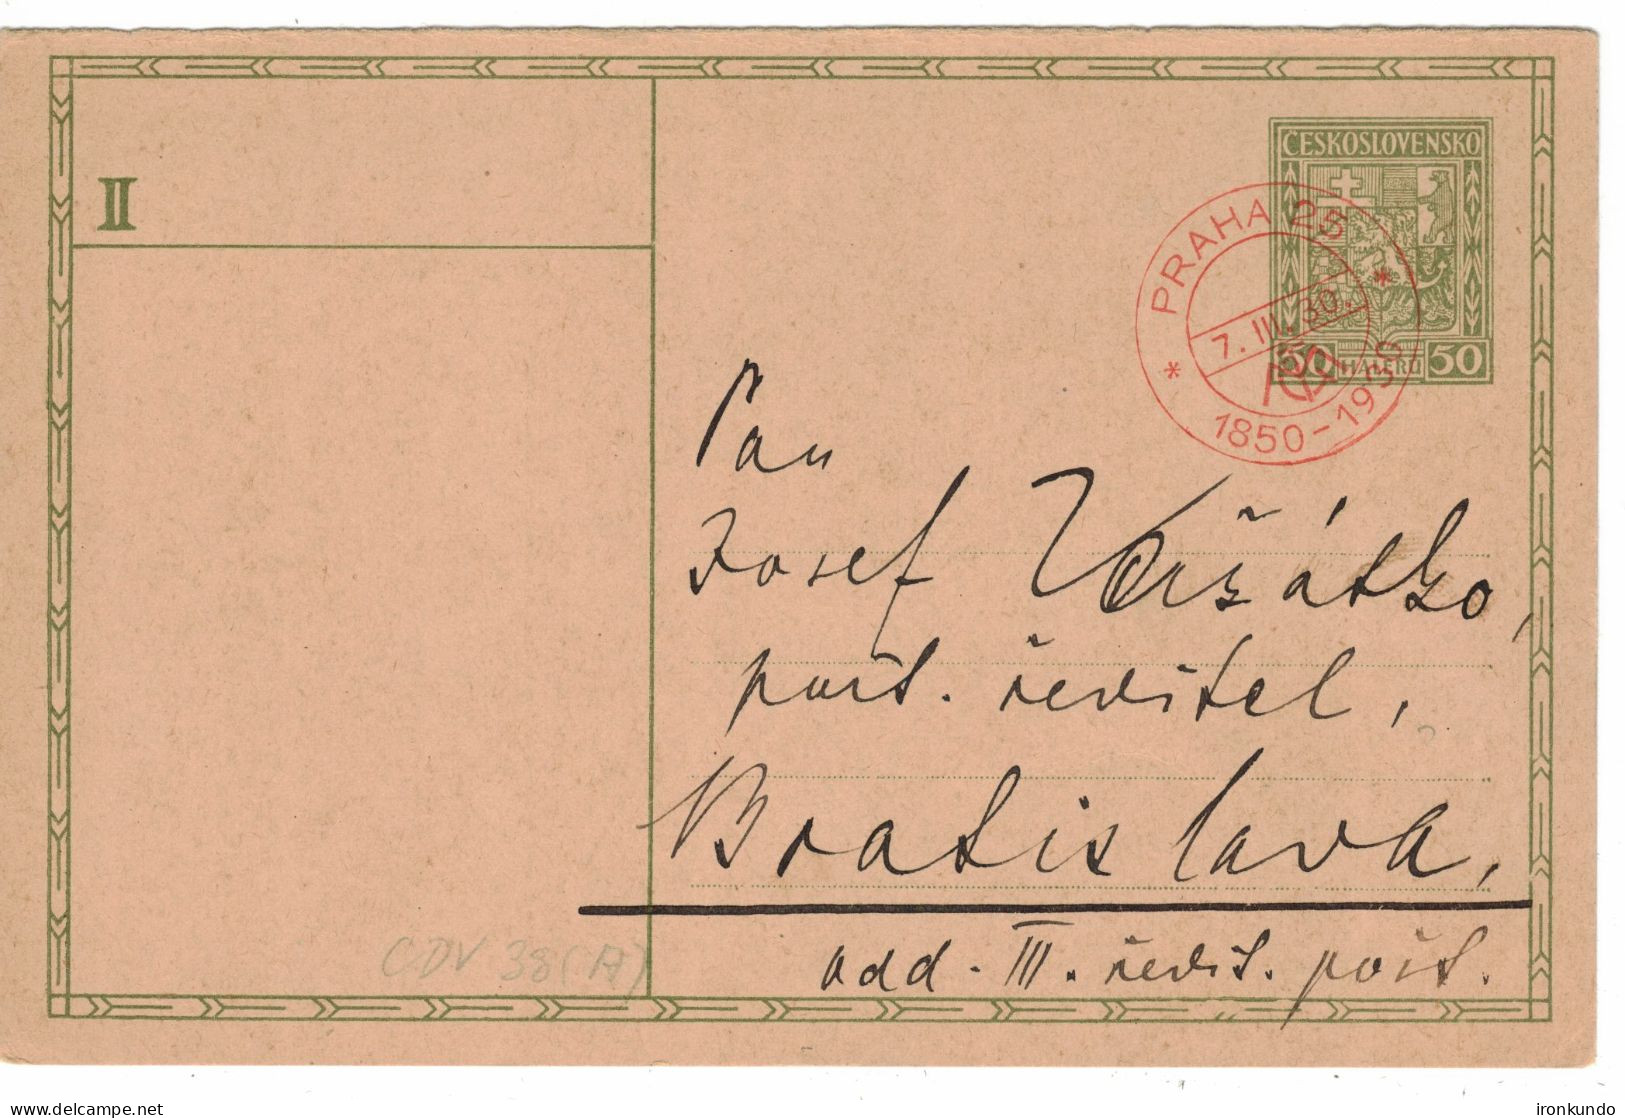 II
ČESKOSLOVENSKO
50 HALÉŘŮ 50
PRAHA 25
7. III. 30.
1850-1930
Pan
Josef
pošt. ředitel,
Bratislava,
odd. III. ředit. pošt.
CDV 38(A)
delcampe.net
ironkundo